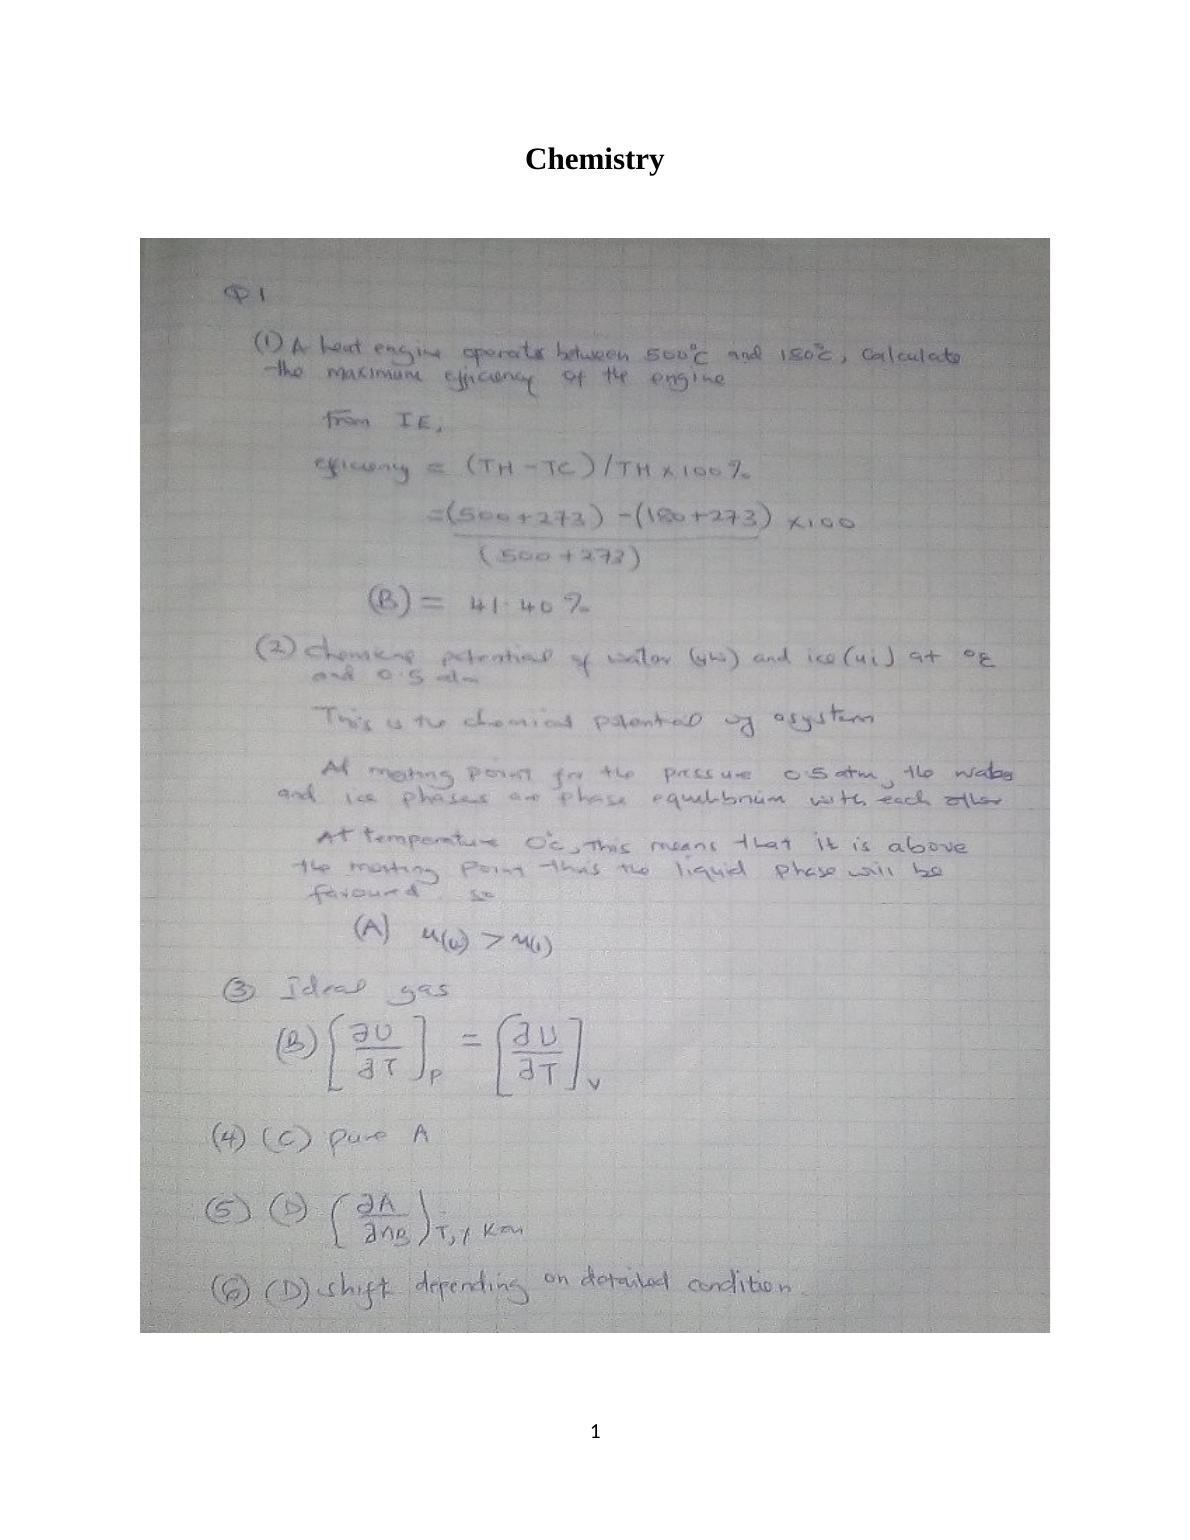 Chemistry
Q1
(1) A heat engine operate between 500°C and 180°C, Calculate
the maximum efficiency of the engine
from IE,
efficiency = (TH - TC) / TH x 100%
= (500 + 273) - (180 + 273) x 100
(500 + 273)
(B) = 41.40 %
(2) Chemical potential of water (μw) and ice (μi) at
and 0.5 atm
This is the chemical potential of a system
At melting point for the pressure 0.5 atm, the water
and ice phases are phase equilibrium with each other
At temperature 0°C, this means that it is above
the melting point thus the liquid phase will be
favoured. so
(A) μ(w) > μ(i)
(3) Ideal gas
(B) [∂U/∂T]P = [∂U/∂T]V
(4) (C) pure A
(5) (D) (∂A/∂nB)T,
(6) (D) shift depending on detailed condition.
1